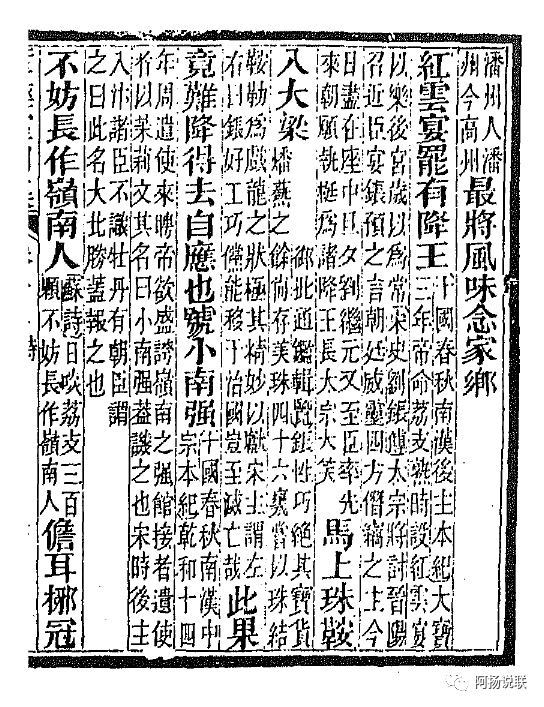 潘州人潘
州今高州
最將風味念家鄉
紅雲宴罷有降王
十國春秋南漢後主本紀大寶
三年帝命荔支熟時設紅雲宴
以樂後宮歲以爲常宋史劉鋹傳太宗將討晉陽
召近臣宴鋹預之言朝廷威靈四方僭竊之主今
日盡在座中旦夕到繼元又至臣率先
來朝願執梃爲諸降王長太宗大笑
馬上珠鞍
入大梁
御批通鑑輯覽鋹性巧絶其寶貨
燔爇之餘尚存美珠四十六甕嘗以珠結
鞍勒爲戲龍之狀極其精妙以獻宋主謂左
右曰鋹好工巧儻能移于治國豈至滅亡哉
此果
竟難降得去自應也號小南强
十國春秋南漢中
宗本紀乾和十四
年周遣使來聘帝欲盛誇嶺南之强館接者遺使
者以茉莉文其名曰小南强葢譏之也宋時後主
入汴諸臣不識牡丹有朝臣謂
之曰此名大北勝葢報之也
不妨長作嶺南人
蘇詩日啖荔支三百
顆不妨長作嶺南人
儋耳椰冠
阿扬说联